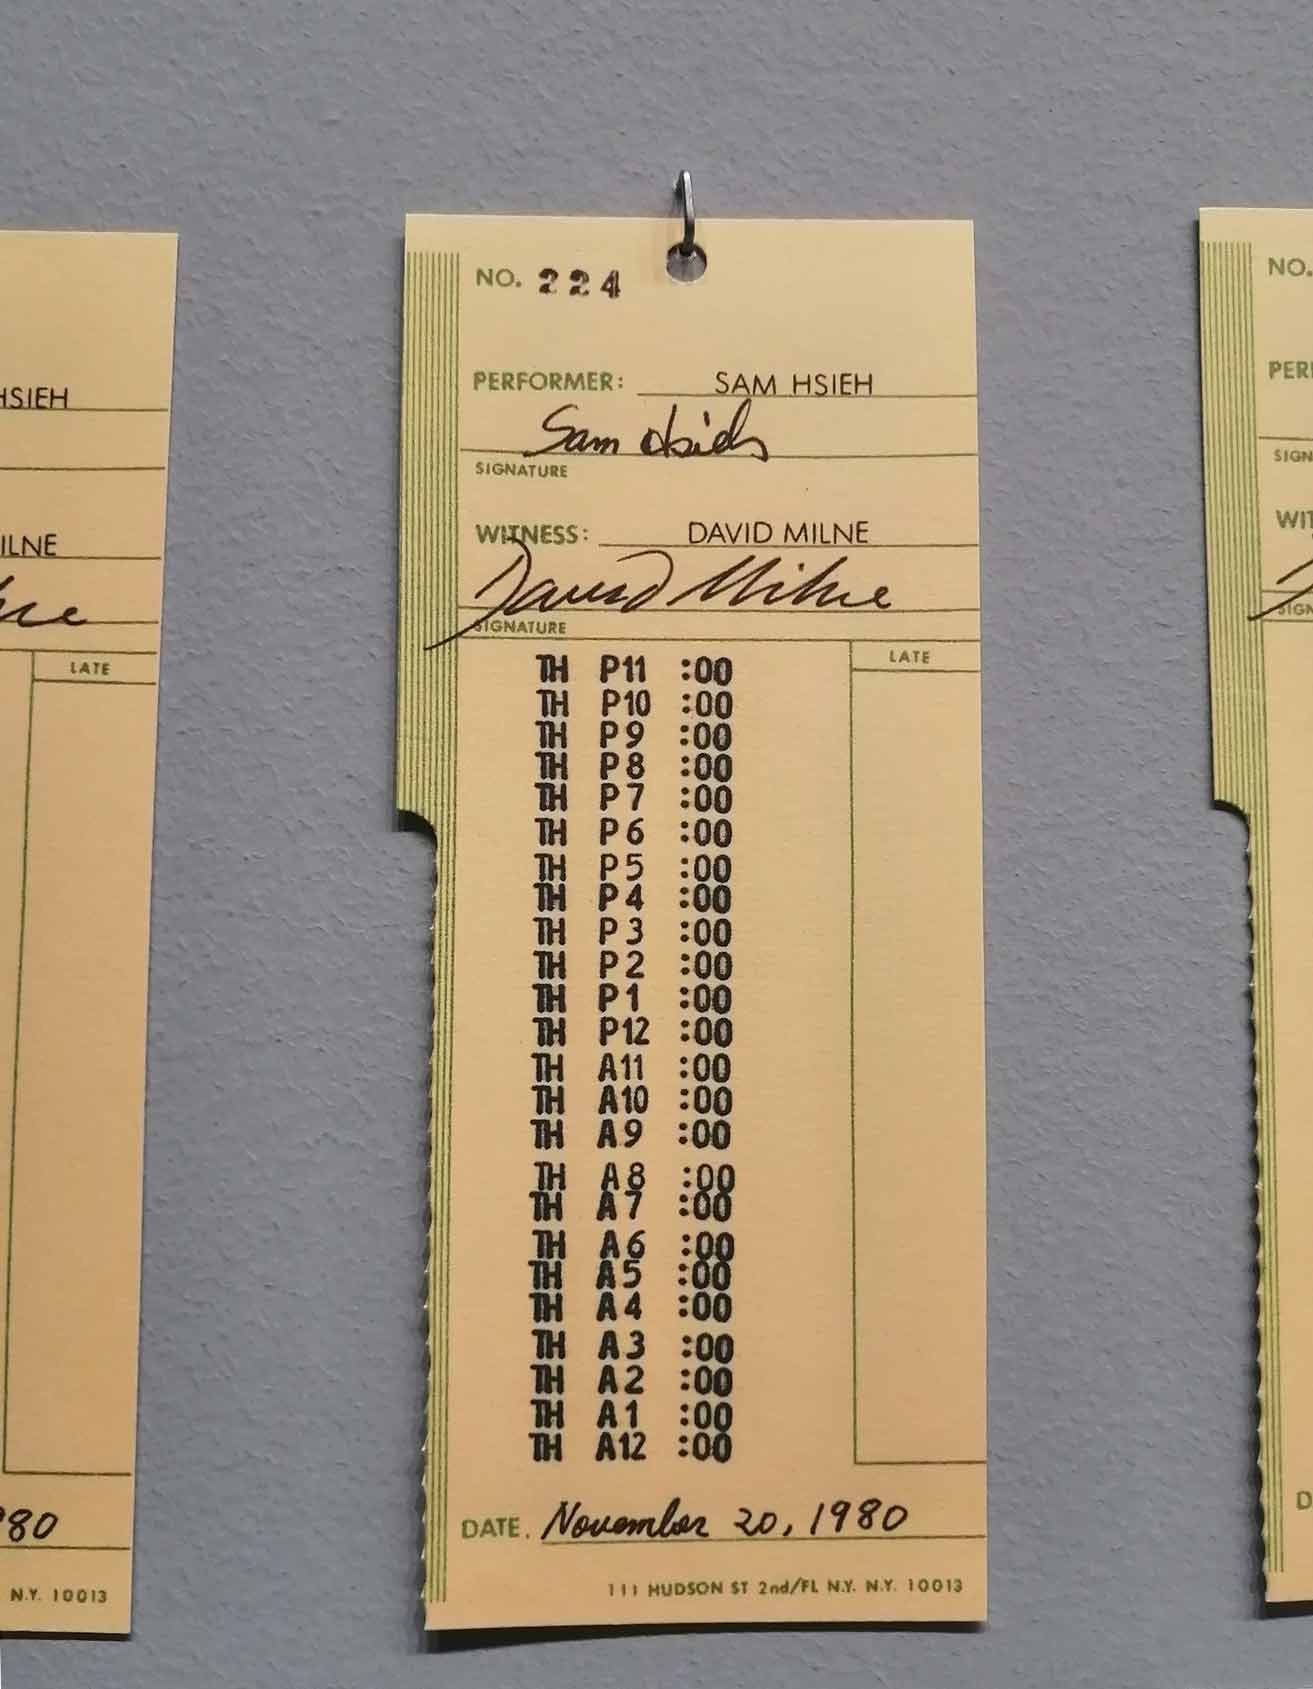 HSIEH
ILNE
LATE
980
N.Y. 10013
NO. 224
PERFORMER: SAM HSIEH
Sam Hsieh
SIGNATURE
WITNESS: DAVID MILNE
David Milne
SIGNATURE
LATE
TH P11 :00
TH P10 :00
TH P9 :00
TH P8 :00
TH P7 :00
TH P6 :00
TH P5 :00
TH P4 :00
TH P3 :00
TH P2 :00
TH P1 :00
TH P12 :00
TH A11 :00
TH A10 :00
TH A9 :00
TH A8 :00
TH A7 :00
TH A6 :00
TH A5 :00
TH A4 :00
TH A3 :00
TH A2 :00
TH A1 :00
TH A12 :00
DATE. November 20, 1980
111 HUDSON ST 2nd/FL N.Y. N.Y. 10013
NO.
PER
SIGN
WIT
SIGN
D